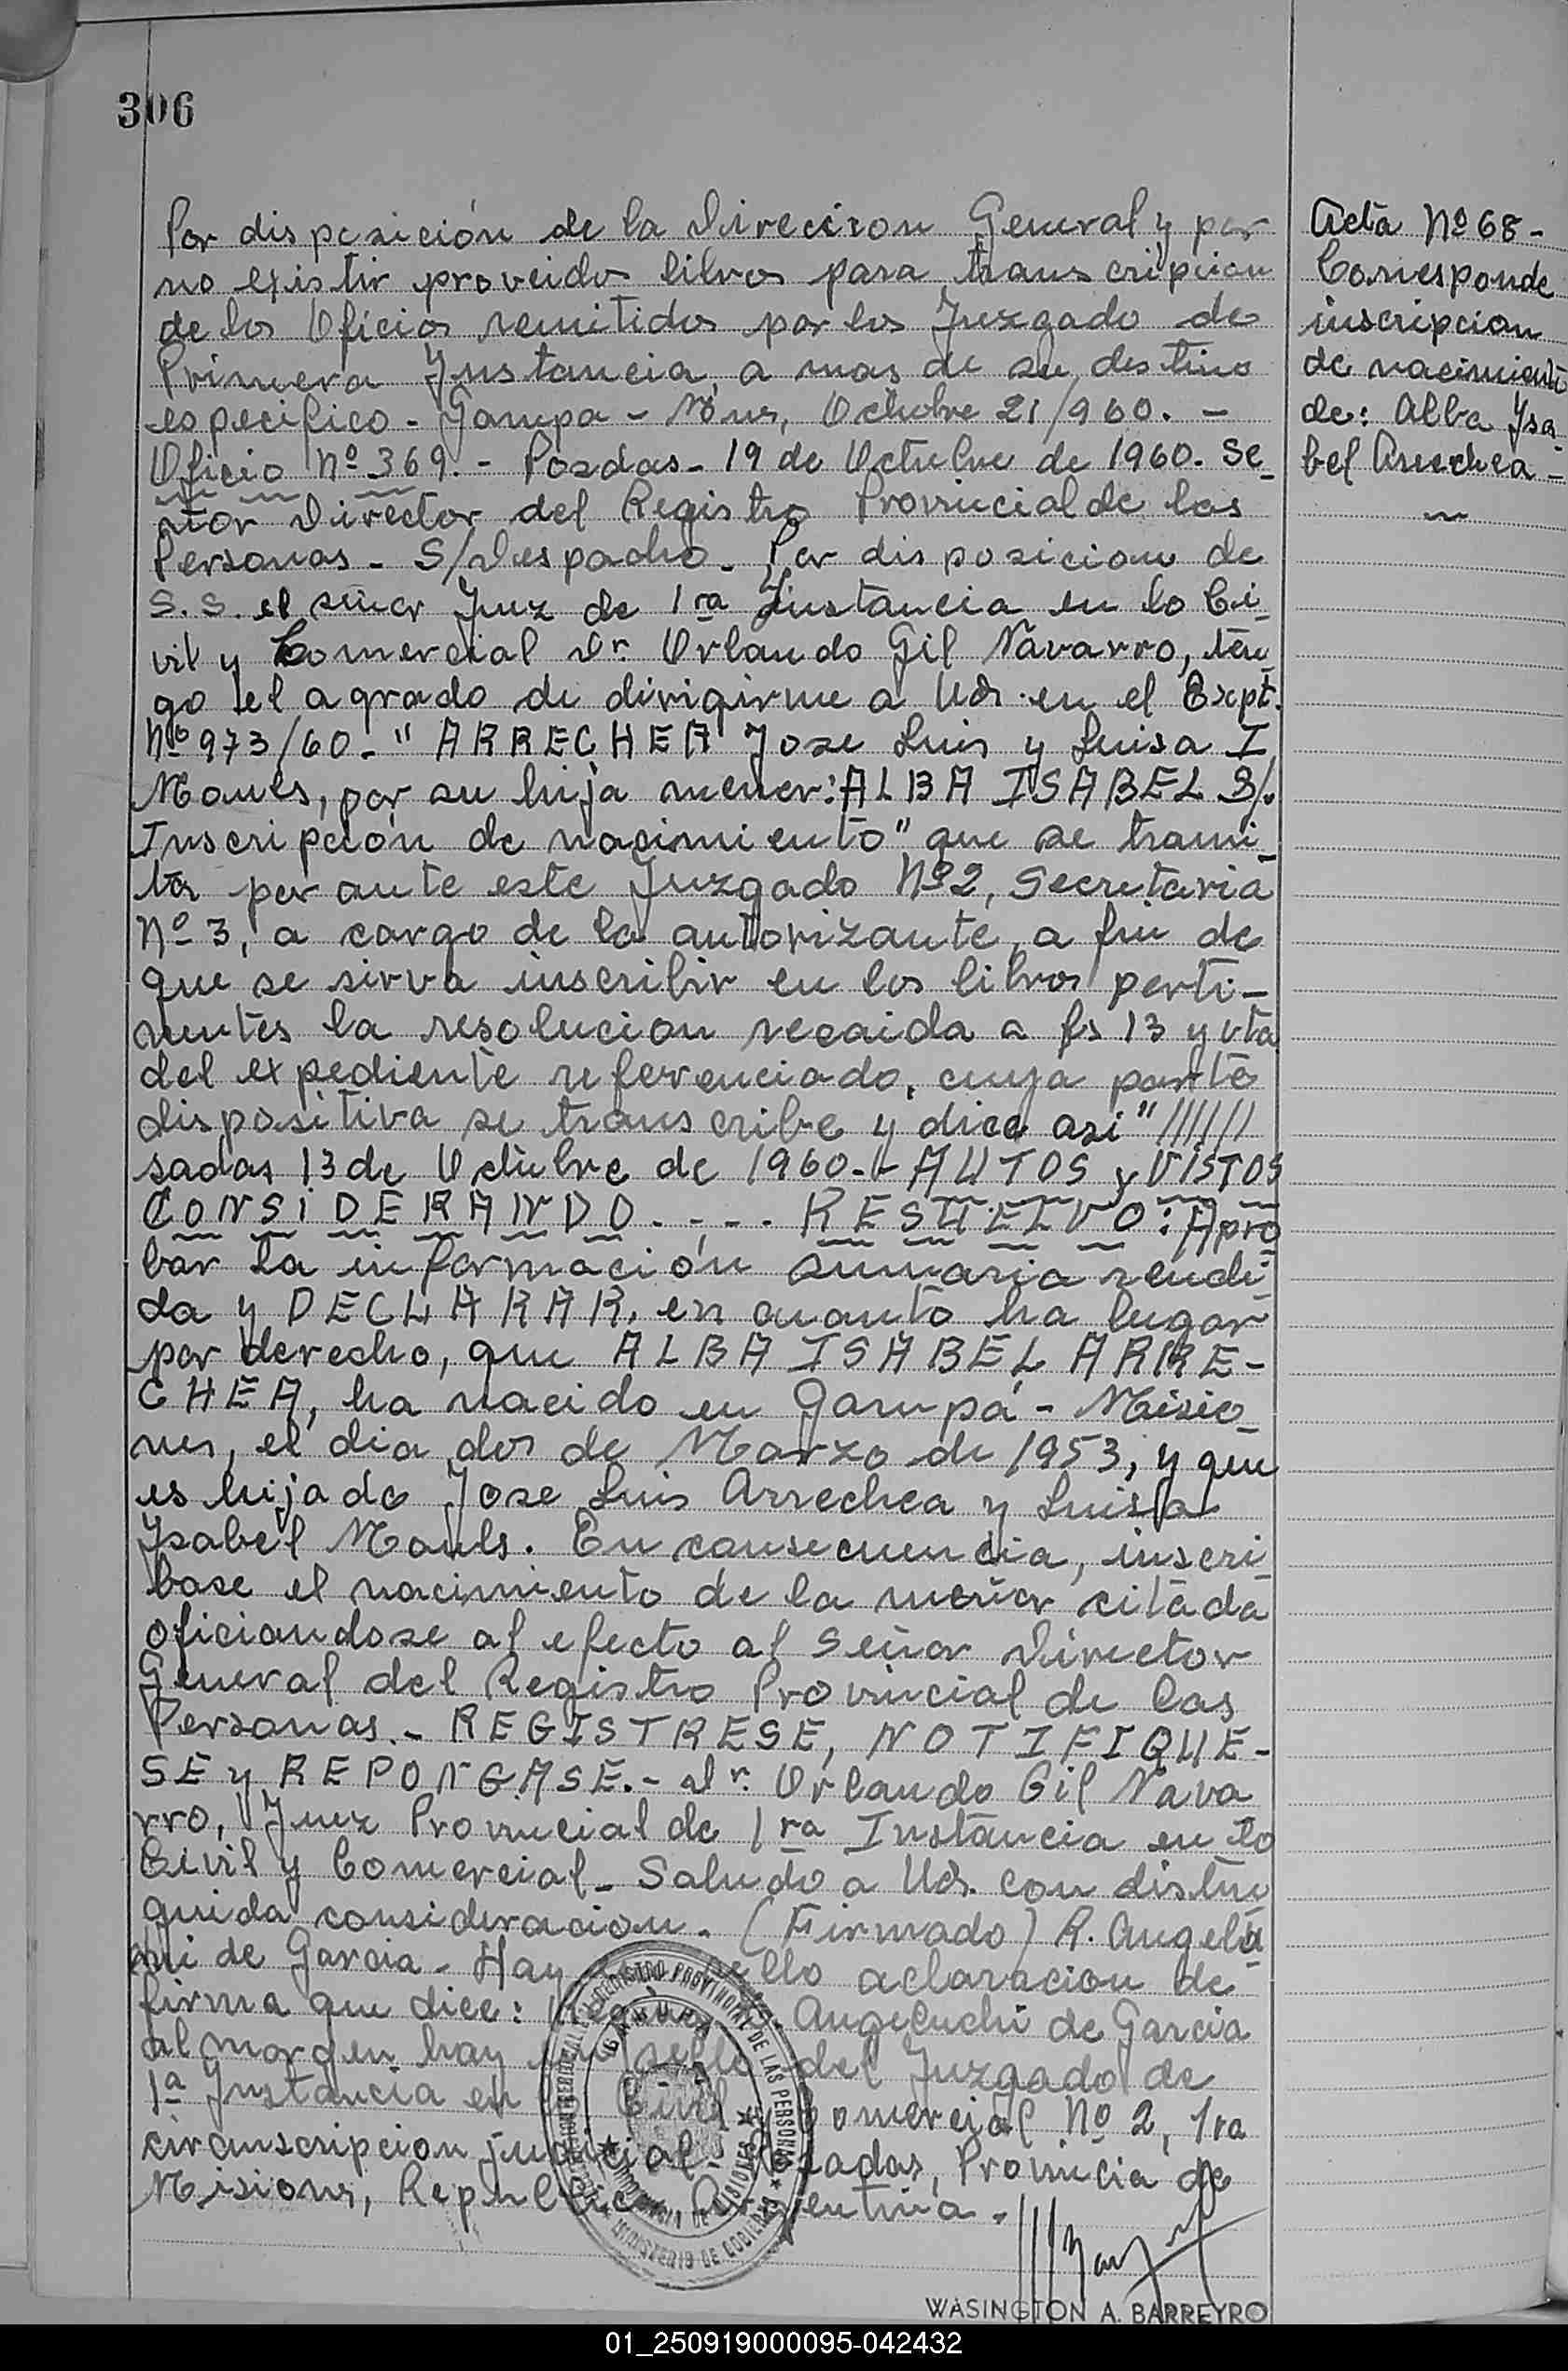 306
Por disposición de la Direccion General y por
no existir proveido libros para transcripcion
de los Oficios remitidos por los Juzgado de
Primera Instancia, a mas de su destino
especifico - Garupa - Mnes, Octubre 21/960. -
Oficio Nº 369. - Posdas - 19 de Octubre de 1960. Se-
ñor Director del Registro Provincial de las
Personas - S/Despacho - Por disposicion de
S. S. el señor Juez de 1ra Instancia en lo Ci-
vil y Comercial Dr. Orlando Gil Navarro, ten-
go el agrado de dirigirme a Ud. en el Expt.
Nº 973/60 - " ARRECHEA Jose Luis y Luisa I
Mouls, por su hija menor: ALBA ISABEL S/.
Inscripción de nacimiento" que se trami-
ta por ante este Juzgado Nº 2, Secretaria
Nº 3, a cargo de la autorizante, a fin de
que se sirva inscribir en los libros perti-
nentes la resolucion recaida a fs 13 y vta
del expediente referenciado, cuya parte
dispositiva se transcribe y dice asi" //////
sadas 13 de Octubre de 1960. - AUTOS y VISTOS
CONSIDERANDO. . - . RESUELVO: Apro
bar la información sumaria rendi-
da y DECLARAR, en cuanto ha lugar
por derecho, que ALBA ISABEL ARRE-
CHEA, ha nacido en Garupá - Misio
nes, el dia dos de Marzo de 1953, y que
es hija de Jose Luis Arrechea y Luisa
Ysabel Mouls. En consecuencia, inscri
base el nacimiento de la menor citada
oficiandose al efecto al Señor Director
General del Registro Provincial de las
Personas. - REGISTRESE, NOTIFIQUE-
SE y REPONGASE. - Dr. Orlando Gil Nava
rro, Juez Provincial de 1ra Instancia en lo
Civil y Comercial - Saludo a Ud. con distin
guida consideracion. (Firmado) R. Angelu
chi de Garcia - Hay un sello aclaracion de
firma que dice: Angeluchi de Garcia
al margen hay un sello del Juzgado de
1ª Instancia en lo Civil y Comercial Nº 2, 1ra
circunscripcion judicial, Posadas, Provincia de
Misiones, Republica Argentina.
Acta Nº 68 -
Corresponde
inscripcion
de nacimiento
de: Alba Ysa
bel Arrechea -
REGISTRO PROVINCIAL DE LAS PERSONAS
GARUPA
PROVINCIA DE MISIONES
MINISTERIO DE GOBIERNO
WASINGTON A. BARREYRO
01_250919000095-042432